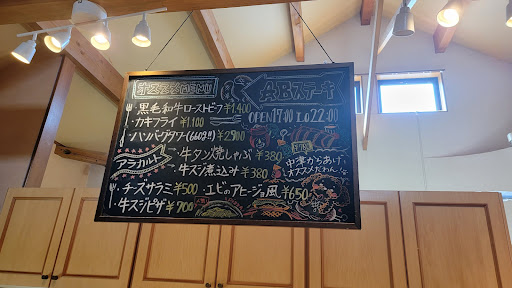 オススメMENU
ABステーキ
OPEN 17:00 to 22:00
・黒毛和牛ローストビーフ ¥1,400
・カキフライ ¥1,100
・ハンバーグタワー(660g!!) ¥2,900
アラカルト
→・牛タン焼しゃぶ ¥380
→・牛スジ煮込み ¥380
・チーズサラミ ¥500
・エビアヒージョ風 ¥650
・牛スジピザ ¥700
中津からあげ
オススメだわん!